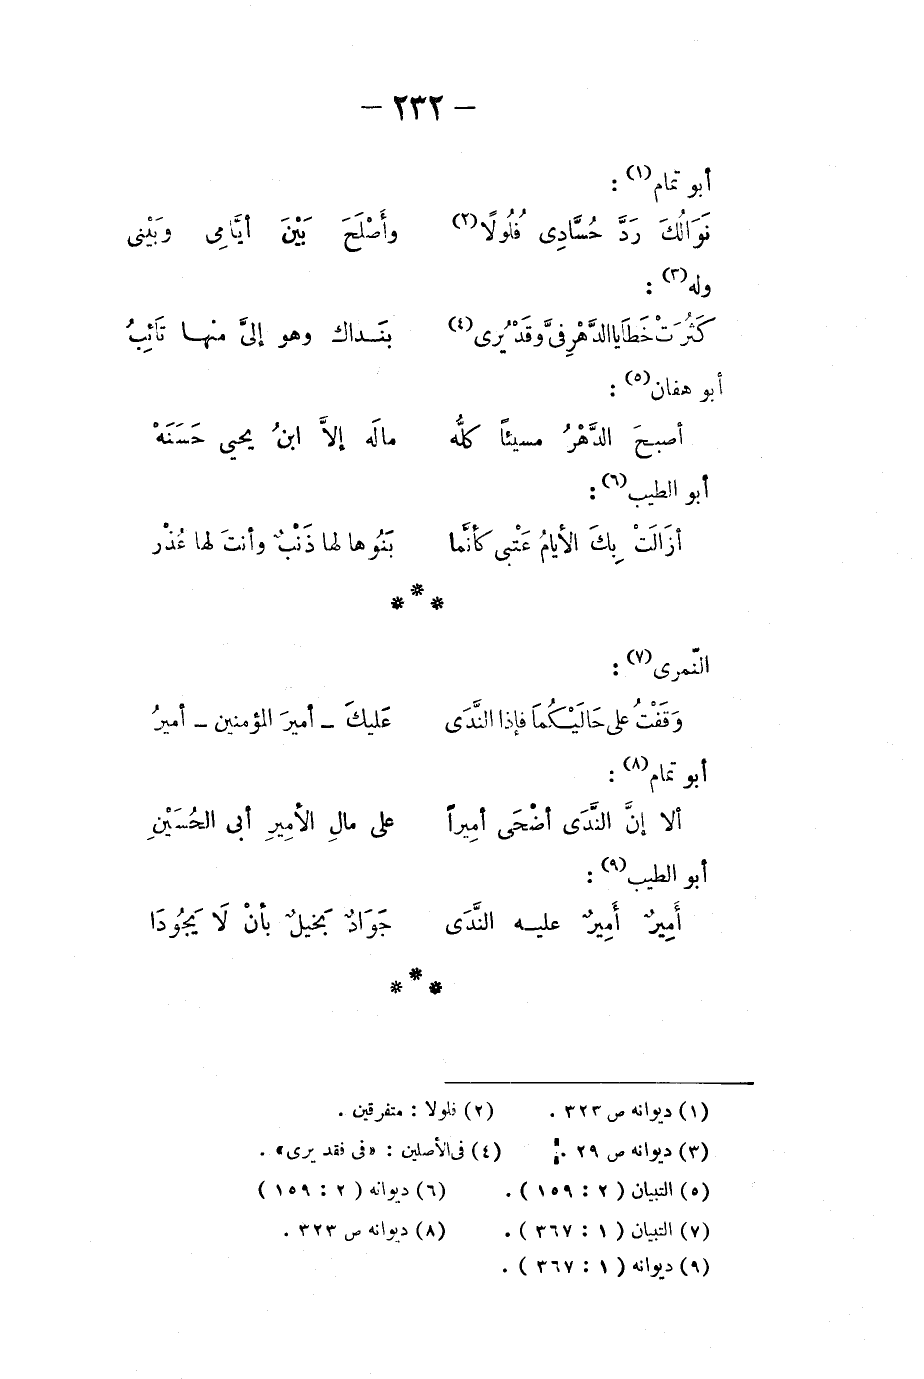 — ٢٣٢ —
أبو تمام(١) :
نَوَالُكَ رَدَّ حُسَّادِى فُلُولًا(٢) وأَصْلَحَ بَيْنَ أيَّامِى وَبَيْنى
وله(٣) :
كَثُرَتْ خَطَايا الدَّهْرِ فىَّ وقَدْ يُرى(٤) بنَـداك وهو إلىَّ منْهـا تَائِبُ
أبو هفان(٥) :
أصبحَ الدَّهْرُ مسيئاً كلُّه مالَه إلاَّ ابنُ يحيي حَسَنَهْ
أبو الطيب(٦) :
أزَالَتْ بِكَ الأيامُ عَتْبى كأنَّما بَنُوها لها ذَنْبٌ وأنتَ لها عُذْر
* * *
النَّمرى(٧) :
وَقَفْتُ على حَالَيْكُمَا فإذا النَّدَى عَليكَ ــ أميرَ المؤمنين ــ أميرُ
أبو تمام(٨) :
ألا إنَّ النَّدَى أضْحَى أمِيراً على مالِ الأمِيرِ أبى الحُسَيْنِ
أبو الطيب(٩) :
أَمِيرٌ أَمِيرٌ عليـه النَّدَى جَوَادٌ بَخيلٌ بأنْ لَا يَجُودَا
* * *
(١) ديوانه ص ٣٢٣ . (٢) فلولا : متفرقين .
(٣) ديوانه ص ٢٩ . (٤) فى الأصلين : «فى فقد يرى» .
(٥) التبيان ( ٢ : ١٥٩ ) . (٦) ديوانه ( ٢ : ١٥٩ )
(٧) التبيان ( ١ : ٣٦٧ ) . (٨) ديوانه ص ٣٢٣ .
(٩) ديوانه ( ١ : ٣٦٧ ) .